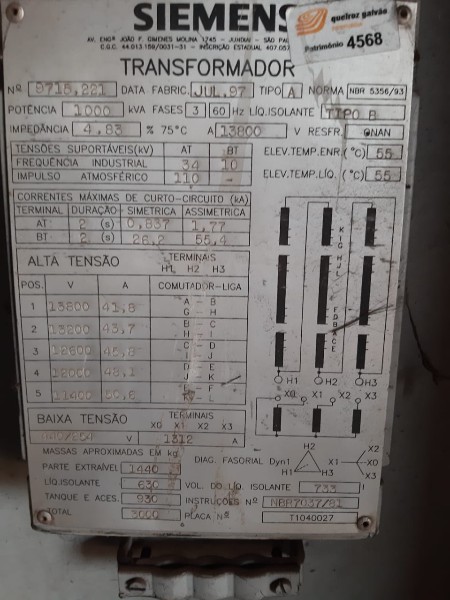 SIEMENS
queiroz galvão
Patrimônio 4568
AV. ENGº JOÃO F. GIMENES MOLINA 1745 - JUNDIAÍ - SÃO PA
C.G.C. 44.013.159/0031-31 - INSCRIÇÃO ESTADUAL 407.05
TRANSFORMADOR
Nº 9718,221 DATA FABRIC. JUL.97 TIPO A NORMA NBR 5356/93
POTÊNCIA 1000 kVA FASES 3 60 Hz LÍQ.ISOLANTE TIPO B
IMPEDÂNCIA 4,83 % 75°C A 13800 V RESFR. ONAN
TENSÕES SUPORTÁVEIS(kV) AT BT ELEV.TEMP.ENR.(°C) 55
FREQUÊNCIA INDUSTRIAL 34 10
IMPULSO ATMOSFÉRICO 110 - ELEV.TEMP.LÍQ.(°C) 55
CORRENTES MÁXIMAS DE CURTO-CIRCUITO (kA)
TERMINAL DURAÇÃO SIMÉTRICA ASSIMÉTRICA
AT 2 (s) 0,837 1,77
BT 2 (s) 26,2 55,4
ALTA TENSÃO TERMINAIS
H1 H2 H3
POS. V A COMUTADOR-LIGA
1 13800 41,8 A - B
G - H
2 13200 43,7 B - C
H - I
3 12600 45,8 C - D
I - J
4 12000 48,1 D - E
J - K
5 11400 50,6 E - F
K - L
K I G
H J L
F D B A C E
H1 H2 H3
X0 X1 X2 X3
BAIXA TENSÃO TERMINAIS
X0 X1 X2 X3
V 1312 A
MASSAS APROXIMADAS EM kg
PARTE EXTRAÍVEL 1440
DIAG. FASORIAL Dyn1 H2 H1 H3 X1 X2 X0 X3
LÍQ.ISOLANTE 630 VOL. DO LÍQ. ISOLANTE 733 l
TANQUE E ACES. 930 INSTRUÇÕES Nº NBR7037/81
TOTAL 3000 PLACA Nº T1040027